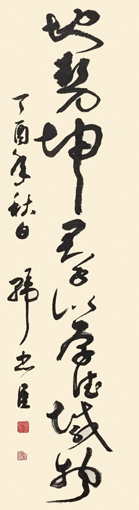 地势坤君子以厚德载物
丁酉年秋日